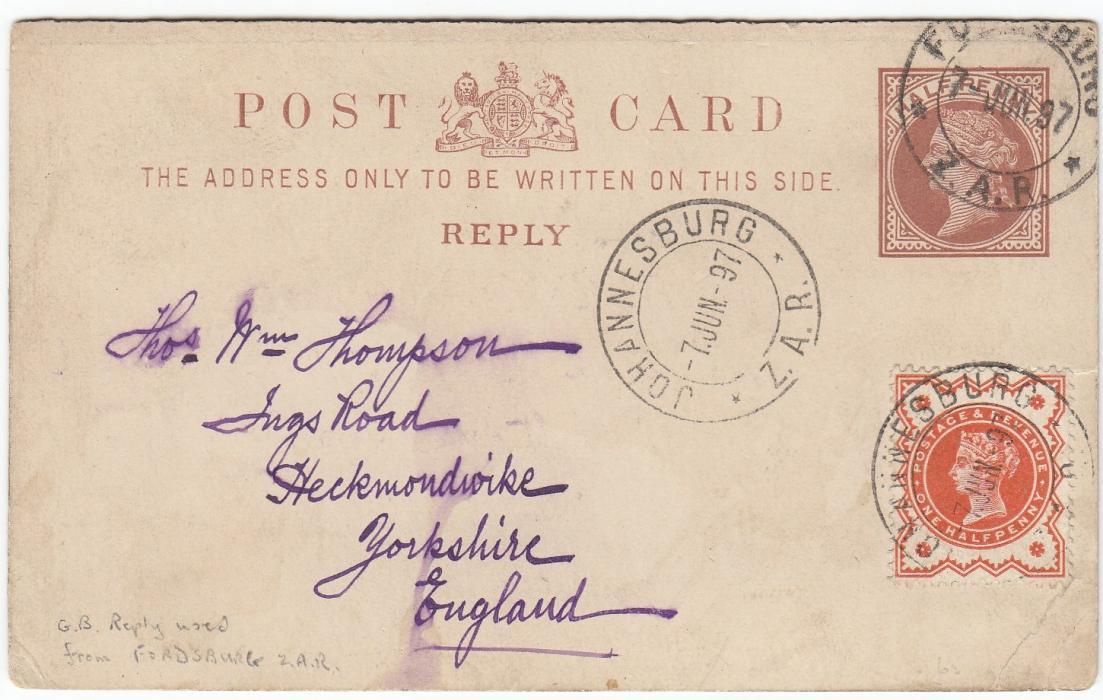 POST CARD
THE ADDRESS ONLY TO BE WRITTEN ON THIS SIDE.
REPLY
HALFPENNY
FORDSBURG
7 JUN. 97
Z. A. R.
JOHANNESBURG
-7.JUN-97
Z. A. R.
Thos Wm Thompson
Ings Road
Heckmondwike
Yorkshire
England
JOHANNESBURG
POSTAGE & REVENUE
ONE HALFPENNY
G.B. Reply used
from FORDSBURG Z.A.R.